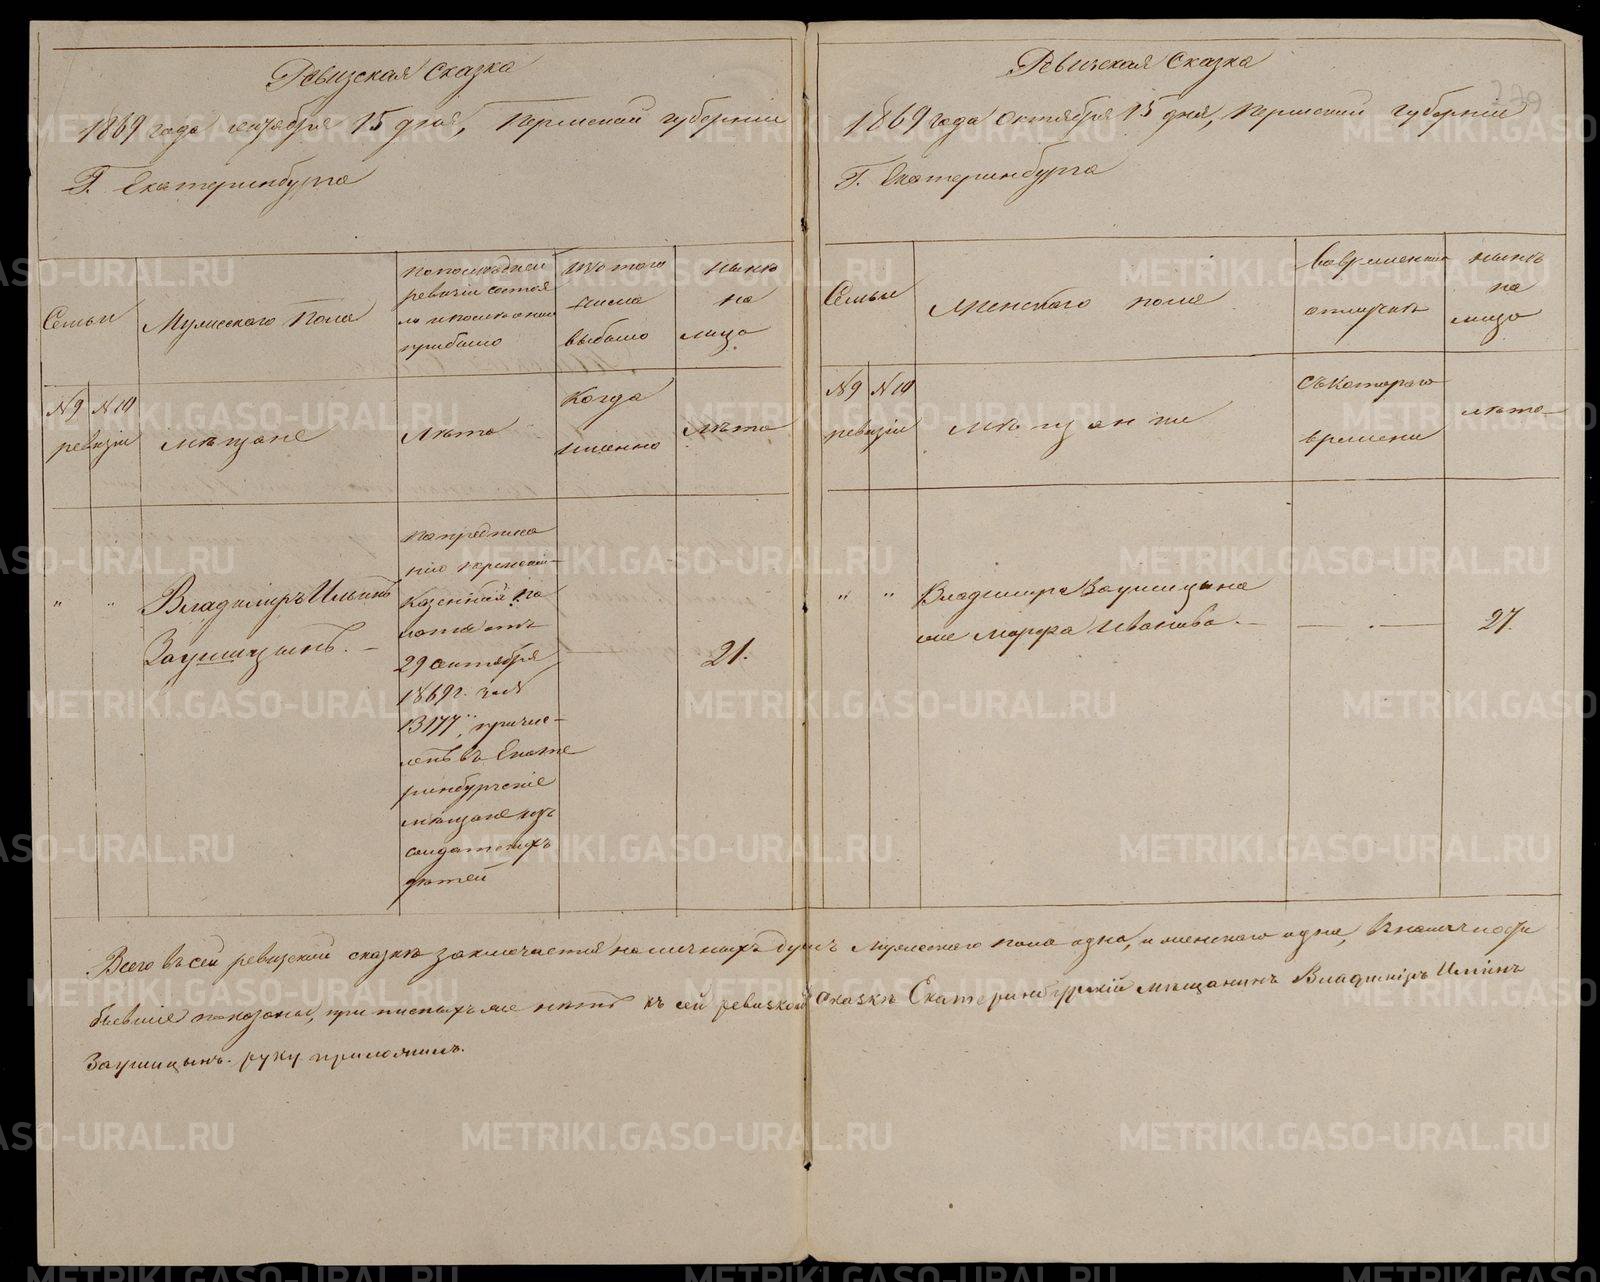 Ревизская сказка
1869 года октября 15 дня, Пермской губернии
Г. Екатеринбурга
Семьи
Мужескаго Пола
По последней
ревизіи состоя
ло и после оной
прибыло
Изъ того
числа
выбыло
Ныне
на
лицо
№ 9 № 10
ревизіи
мещане
Лета
Когда
именно
Лета
" "
Владиміръ Ильинъ
Заушицынъ. –
По предписа
нію Пермской
Казенной Па
латы отъ
29 сентября
1869 г. за №
13177, причис-
ленъ въ Екате
ринбургскіе
мещане изъ
солдатскихъ
детей
21.
Ревизская сказка
279
1869 года Октября 15 дня, Пермской губерніи
Г. Екатеринбурга
Семьи
Женскаго пола
Во временной
отлучке
ныне
на
лицо
№ 9 № 10
ревизіи
мещанки
Съ котораго
времени
лета
" "
Владиміра Заушицына
жена Марфа Иванова. –
27.
Всего въ сей ревизской сказке заключается наличныхъ душъ мужескаго пола одна, и женскаго одна,
бывшіе показаны, прописныхъ же нетъ къ сей ревизкой сказке Екатеринбургскій мещанинъ Владиміръ Ильинъ
Заушицынъ. руку приложилъ.
METRIKI.GASO-URAL.RU